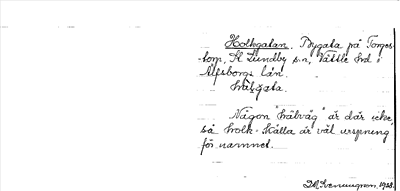 Holkgatan. Bygata på Torges-
torp, St Lundby s:n, Vättle hd i
Älfsborgs län.
gata.
Någon är där icke,
så holk = källa är väl ursprung
för namnet.
1928.